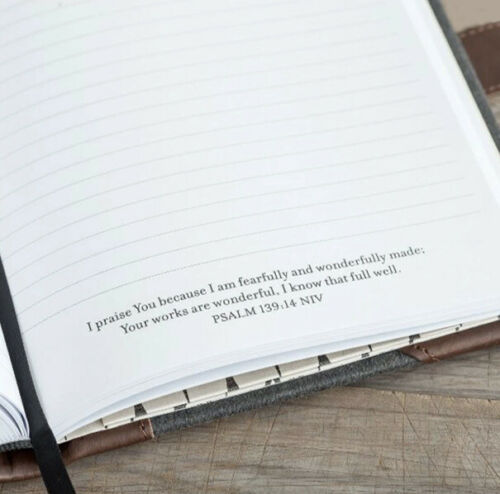 I praise You because I am fearfully and wonderfully made;
Your works are wonderful, I know that full well.
PSALM 139:14 NIV